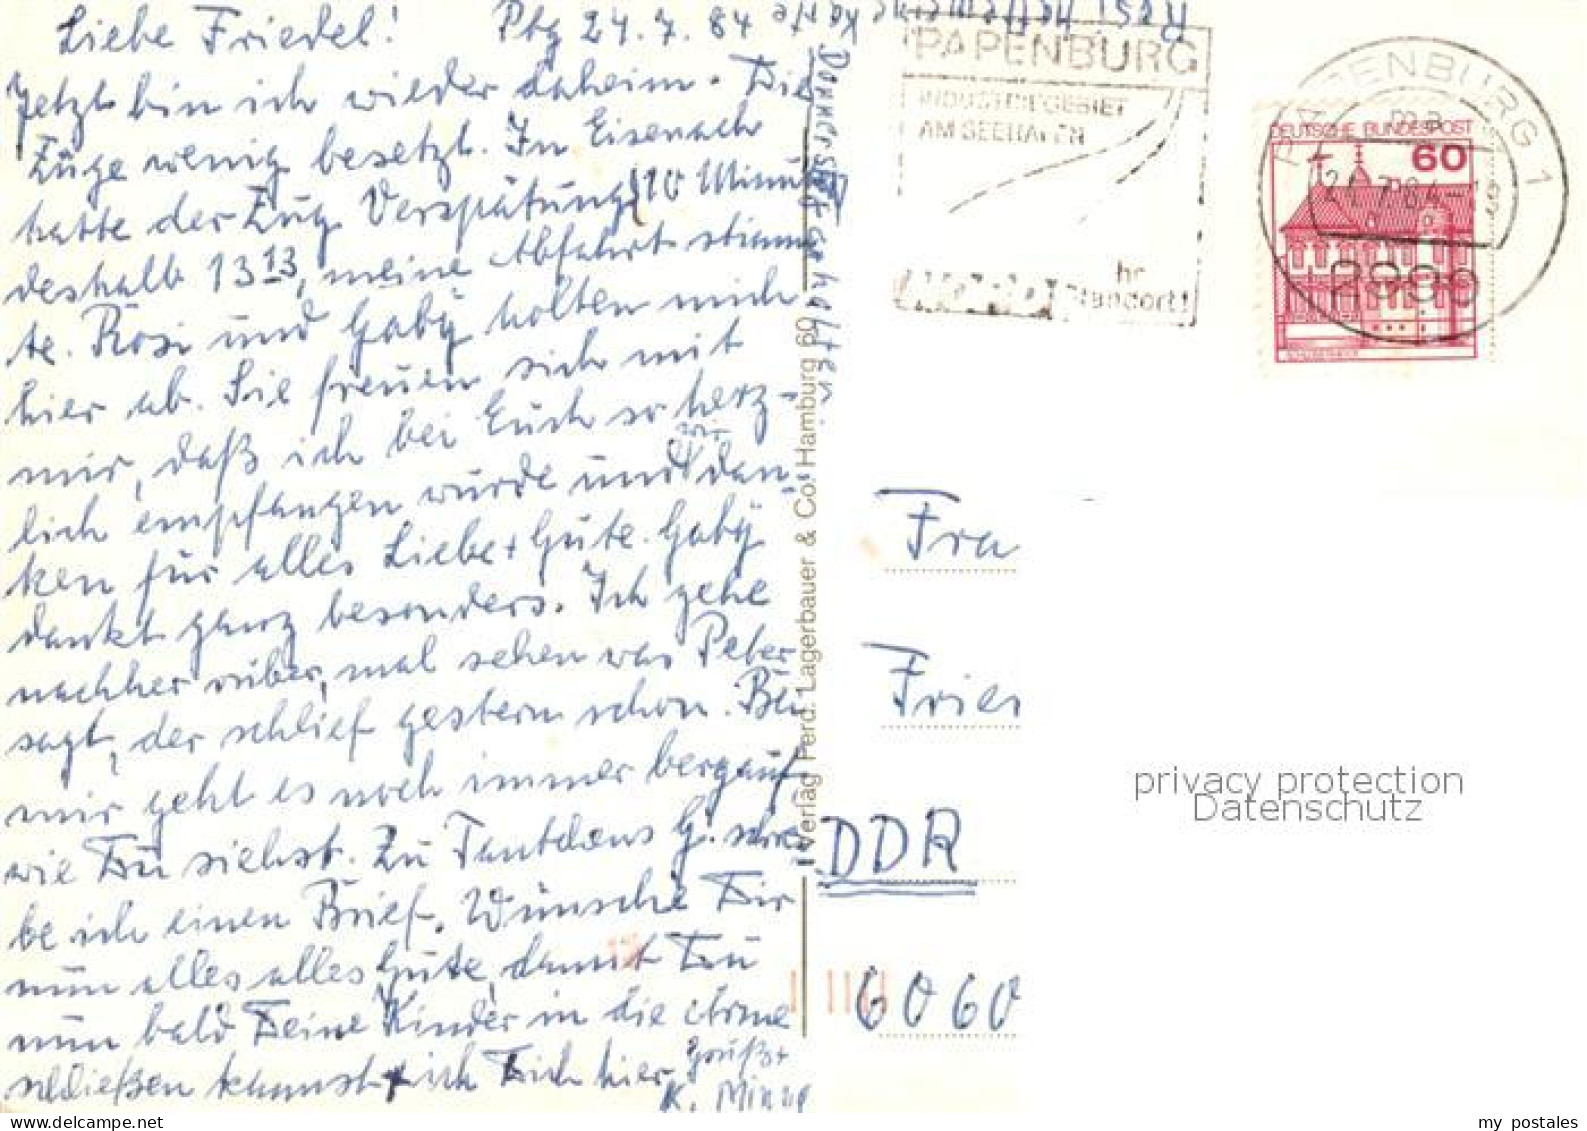 Liebe Friedel! Pbg 24.7.84
Jetzt bin ich wieder daheim. Die
Züge wenig besetzt. In Eisenach
hatte der Zug Verspätung (10 Minuten
deshalb 13 13, meine Abfahrt stimm
te. Rosi und Gaby holten mich
hier ab. Sie freuen sich mit
mir, daß ich bei Euch so herz-
lich empfangen wurde und wir dan-
ken für alles Liebe + Gute. Gaby
dankt ganz besonders. Ich gehe
nachher rüber, mal sehen was Peter
sagt, der schlief gestern schon. Bei
mir geht es noch immer bergauf,
wie Du siehst. Zu Tantdaus G. schrei
be ich einen Brief. Wünsche Dir
nun alles alles Gute, damit Du
nun bald Deine Kinder in die Arme
schließen kannst + ich Dich hier
Grüßt
K. Minna
Karte
Donnerstag erhalten
Verlag Ferd. Lagerbauer & Co. Hamburg 60
PAPENBURG
INDUSTRIEGEBIET
AM SEEHAFEN
Standort!
PAPENBURG 1
24.7.84-18
2990
DEUTSCHE BUNDESPOST
60
Fra
Frie
DDR
6060
privacy protection
Datenschutz
www.delcampe.net
my_postales